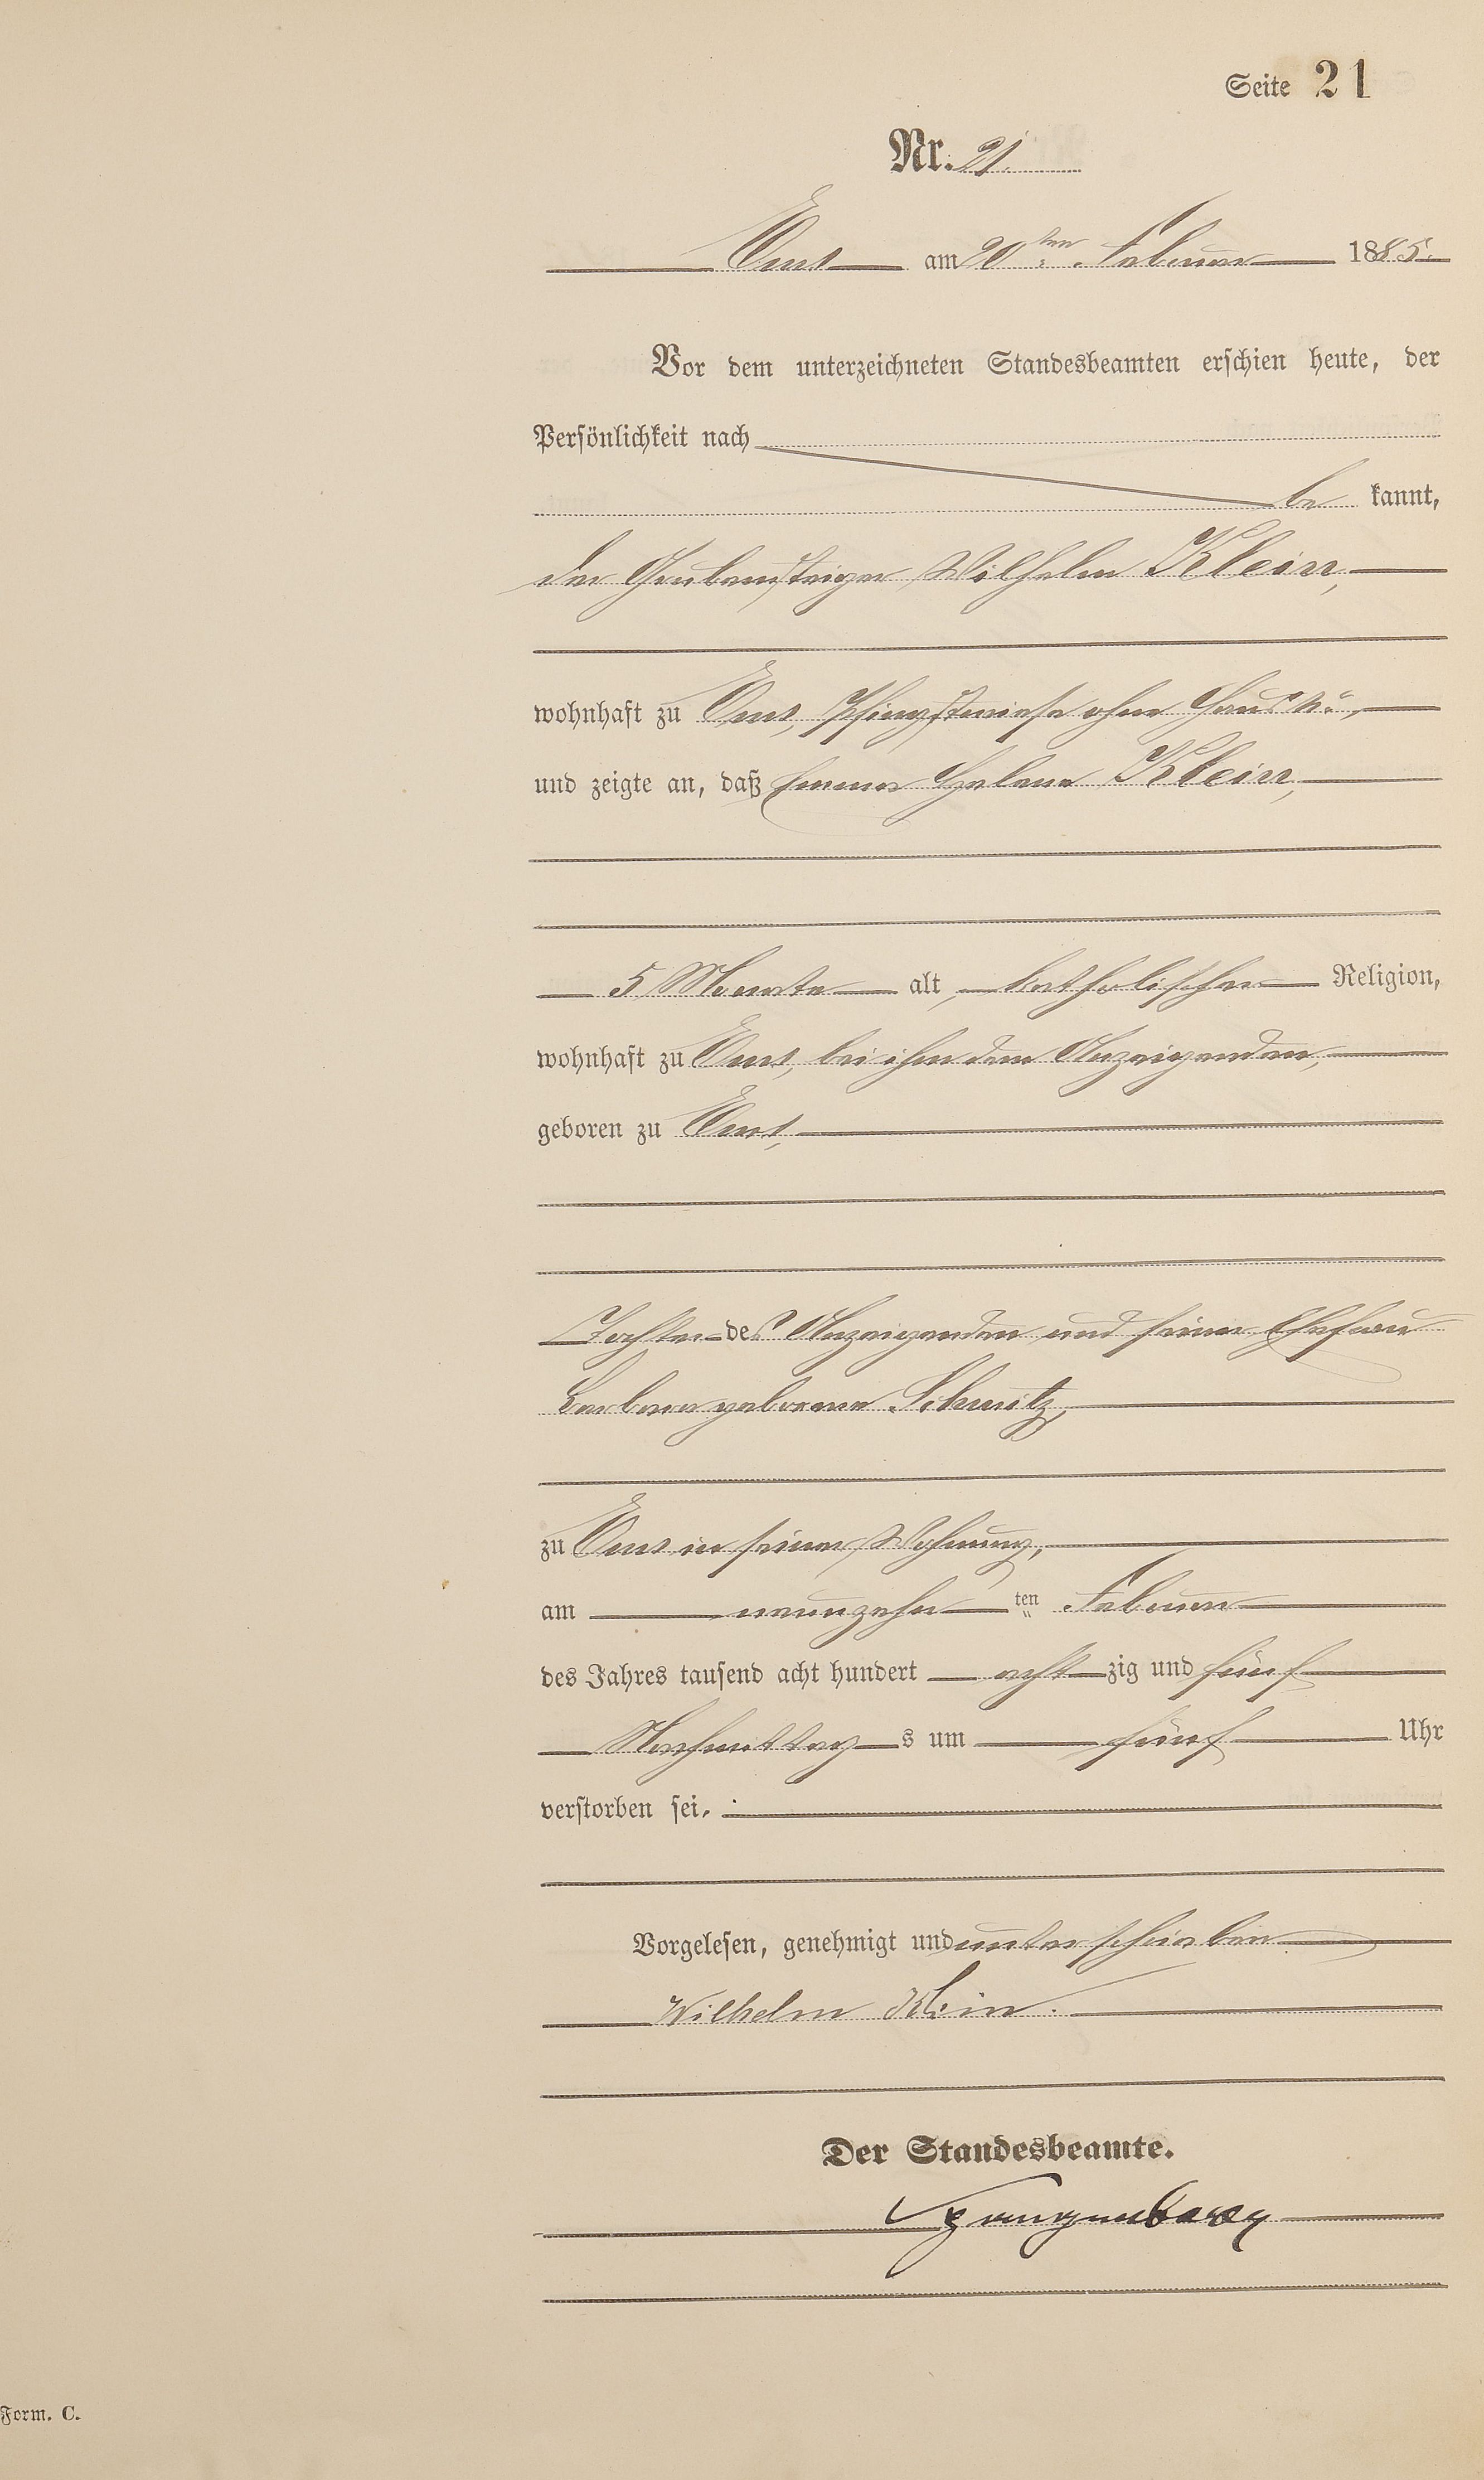 Seite 21
Nr. 21.
Ems am 20ten Februar 1885.
Vor dem unterzeichneten Standesbeamten erschien heute, der
Persönlichkeit nach
be kannt,
der Grubensteiger Wilhelm Klein,
wohnhaft zu Ems, Pfingstwiese ohne Haus №,
und zeigte an, daß Emma Helena Klein,
5 Monate alt, katholischer Religion,
wohnhaft zu Ems, bei ihm dem Anzeigenden,
geboren zu Ems,
Tochter des Anzeigenden und seiner Ehefrau
Barbara geborene Schmitz,
zu Ems in seiner Wohnung,
am neunzehn ten Februar
des Jahres tausend acht hundert acht zig und fünf
Nachmittag s um fünf Uhr
verstorben sei.
Vorgelesen, genehmigt und unterschrieben
Wilhelm Klein.
Der Standesbeamte.
Form. C.